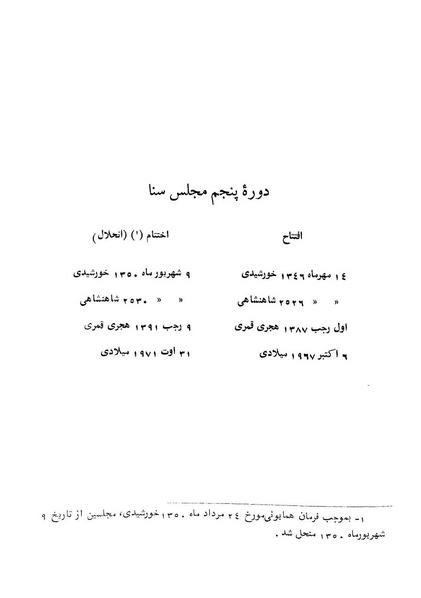 دورهٔ پنجم مجلس سنا
افتتاح اختتام (۱) (انحلال)
۱٤ مهرماه ۱۳٤٦ خورشیدی ۹ شهریور ماه ۱۳۵۰ خورشیدی
» » ۲۵۲٦ شاهنشاهی » » ۲۵۳۰ شاهنشاهی
اول رجب ۱۳۸۷ هجری قمری ۹ رجب ۱۳۹۱ هجری قمری
٦ اکتبر ۱۹٦۷ میلادی ۳۱ اوت ۱۹۷۱ میلادی
۱- بموجب فرمان همایونی مورخ ۲٤ مرداد ماه ۱۳۵۰ خورشیدی، مجلسین از تاریخ ۹
شهریورماه ۱۳۵۰ منحل شد.